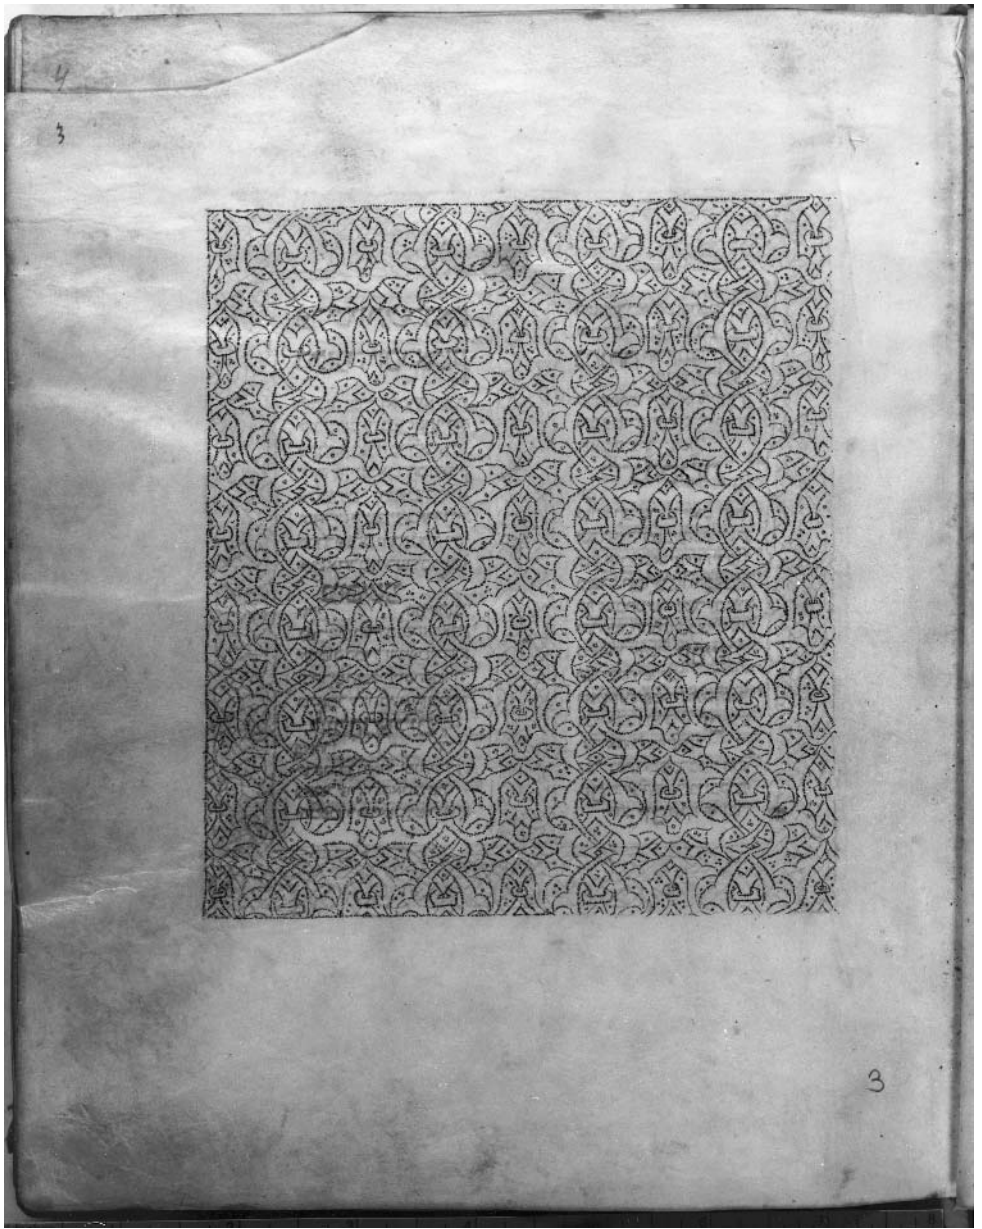 4
3
3